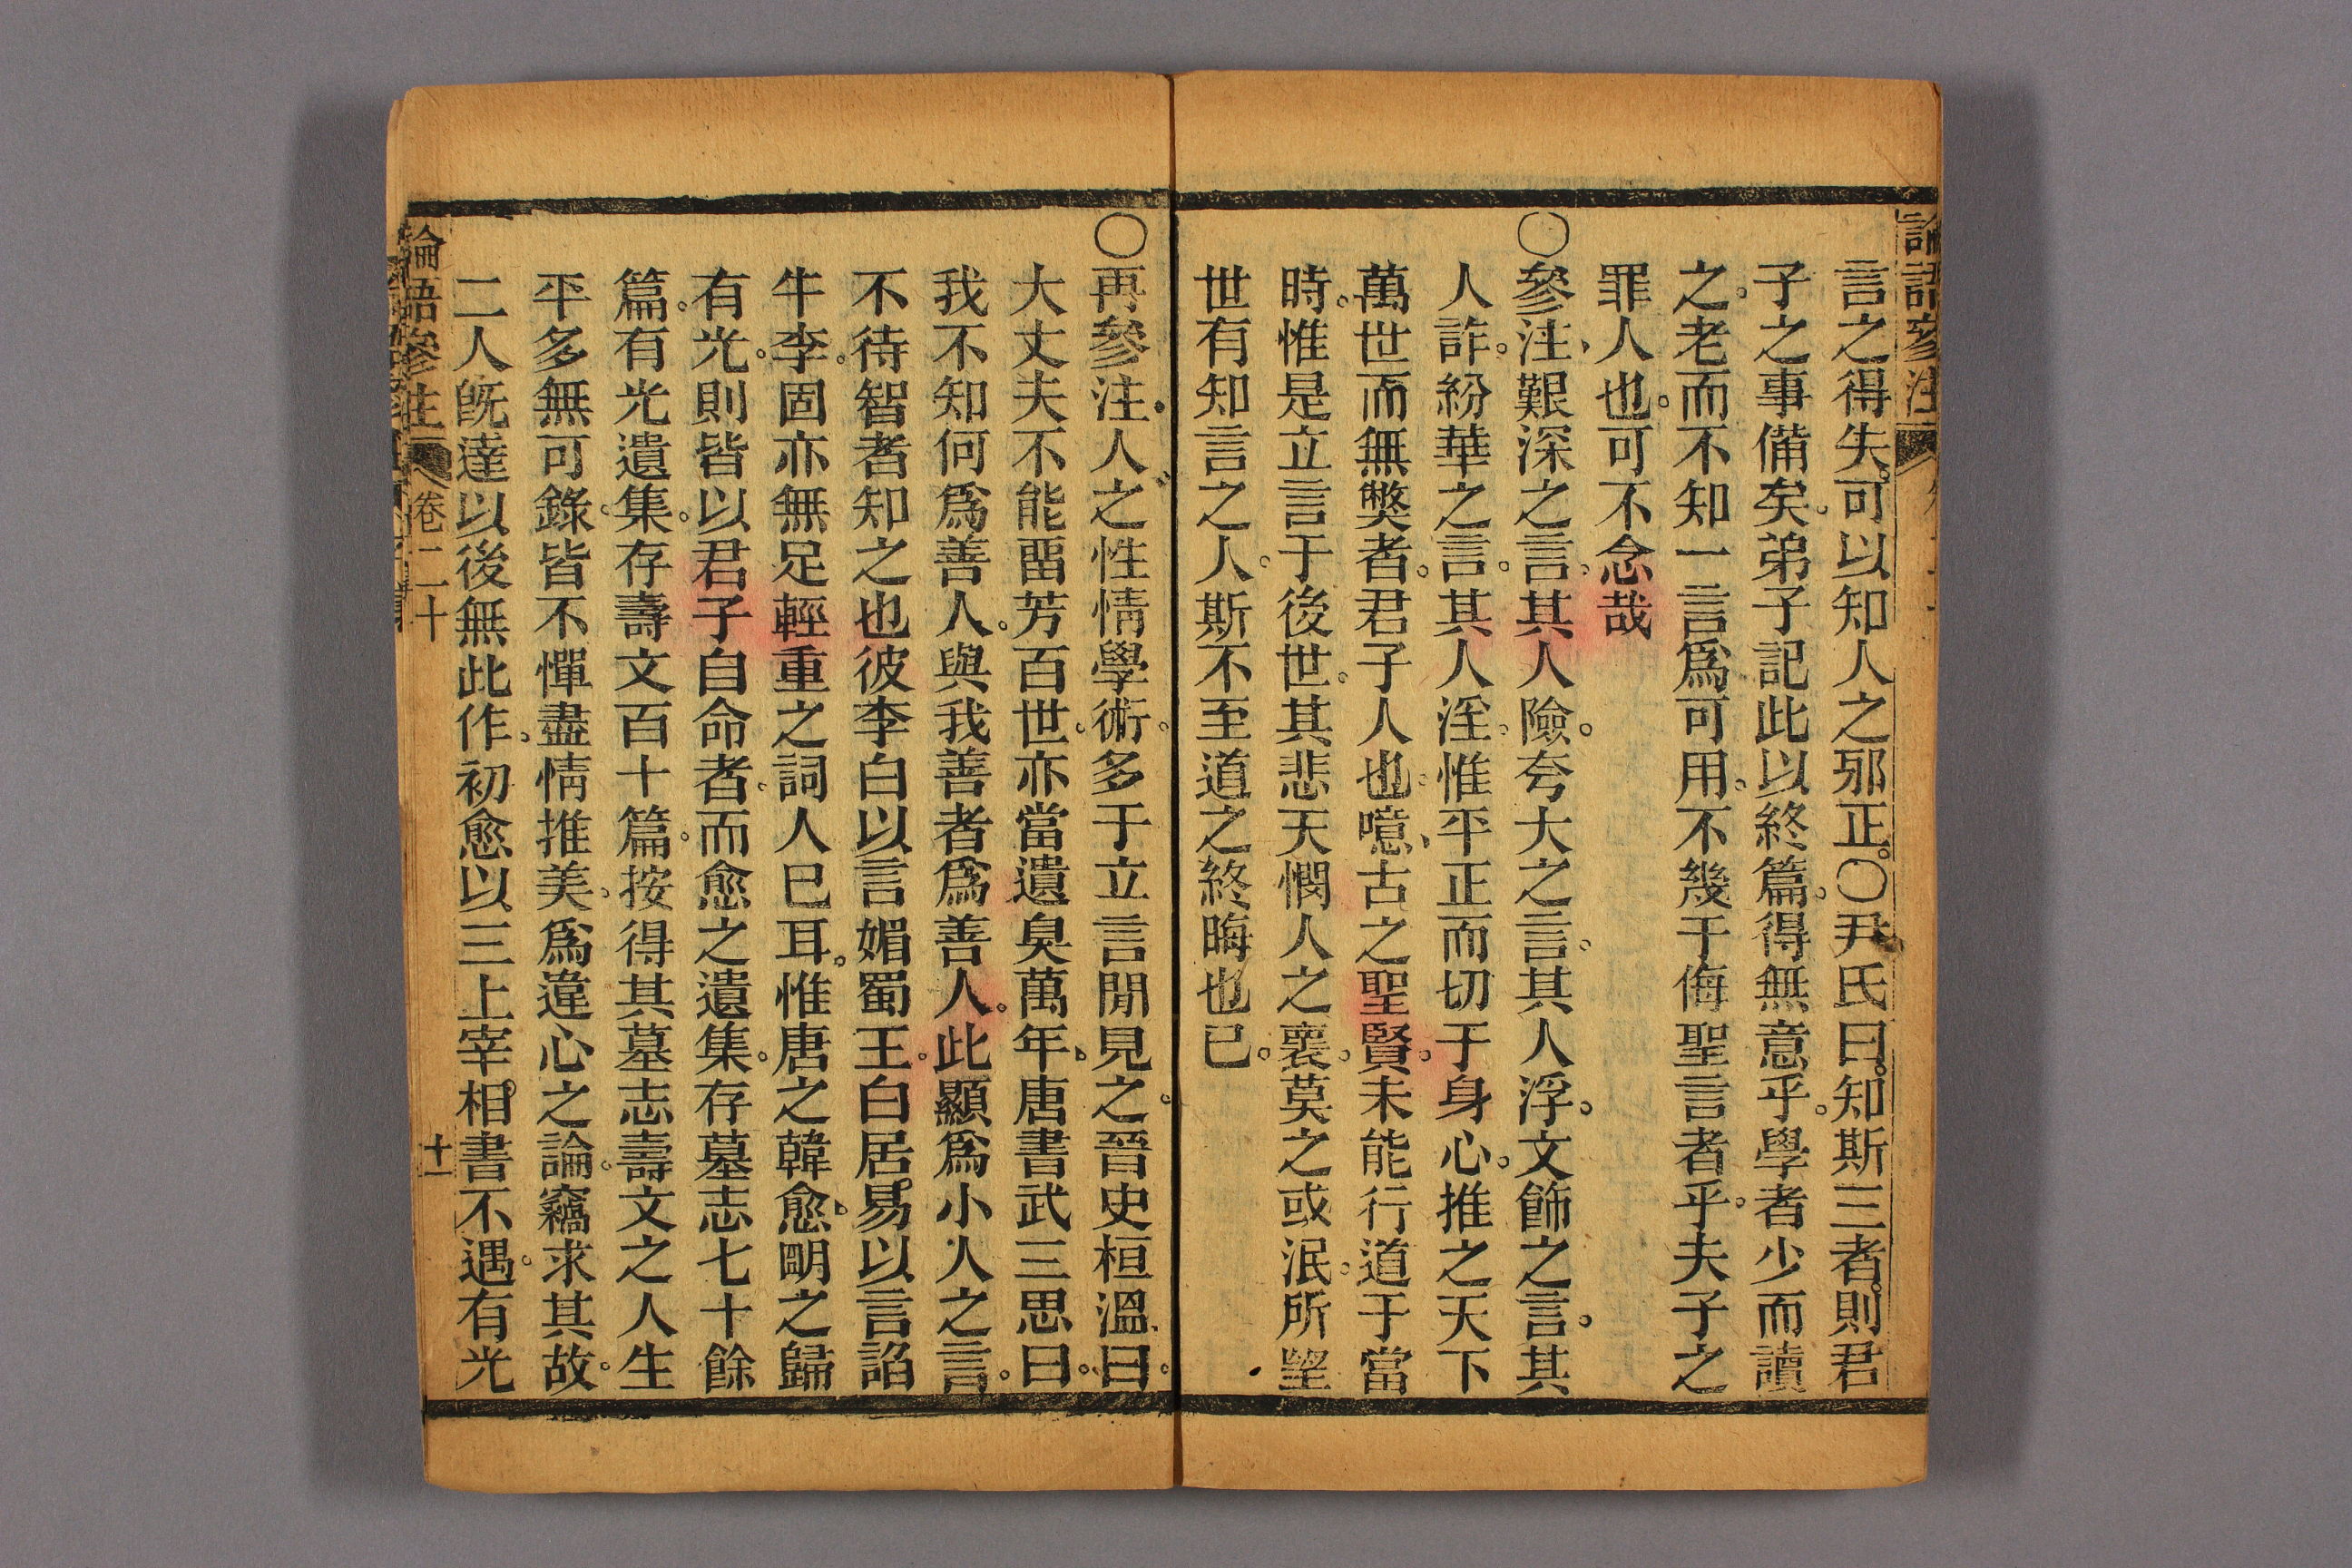 論語參注
言之得失。可以知人之邪正。○尹氏曰。知斯三者。則君
子之事備矣。弟子記此以終篇。得無意乎。學者少而讀
之。老而不知一言爲可用。不幾于侮聖言者乎。夫子之
罪人也。可不念哉
○參注、艱深之言。其人險。夸大之言。其人浮。文飾之言。其
人詐。紛華之言。其人淫。惟平正而切于身心。推之天下
萬世而無獘者。君子人也。噫、古之聖賢。未能行道于當
時。惟是立言于後世。其悲天憫人之褱。莫之或泯。所朢
世有知言之人。斯不至道之終晦也已。
○再參注、人之性情學術。多于立言閒見之。晉史桓溫曰。
大丈夫不能畱芳百世。亦當遺臭萬年。唐書武三思曰。
我不知何爲善人。與我善者爲善人。此顯爲小人之言。
不待智者知之也彼李白以言媚蜀王。白居易以言諂
牛李。固亦無足輕重之詞人已耳。惟唐之韓愈。朙之歸
有光。則皆以君子自命者。而愈之遺集。存墓志七十餘
篇。有光遺集。存壽文百十篇。按得其墓志壽文之人生
平多無可錄。皆不憚盡情推美。爲違心之論。竊求其故。
二人旣達以後無此作。初愈以三上宰相書不遇。有光
論語參注
卷二十
十一